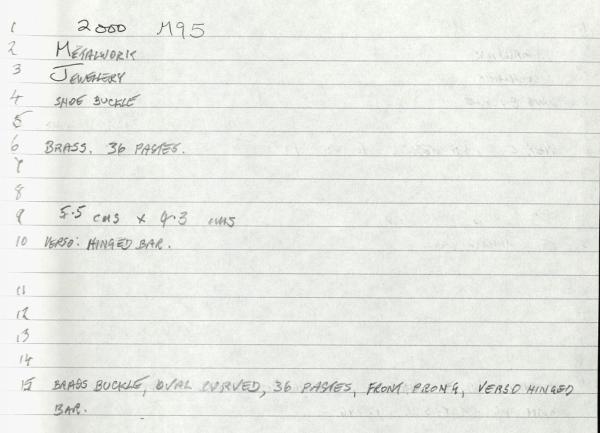 1 2000 M95
2 METALWORK
3 JEWELLERY
4 SHOE BUCKLE
5
6 BRASS. 36 PASTES.
7
8
9 5.5 cms x 4.3 cms
10 VERSO: HINGED BAR.
11
12
13
14
15 BRASS BUCKLE, OVAL CURVED, 36 PASTES, FRONT PRONG, VERSO HINGED
BAR.